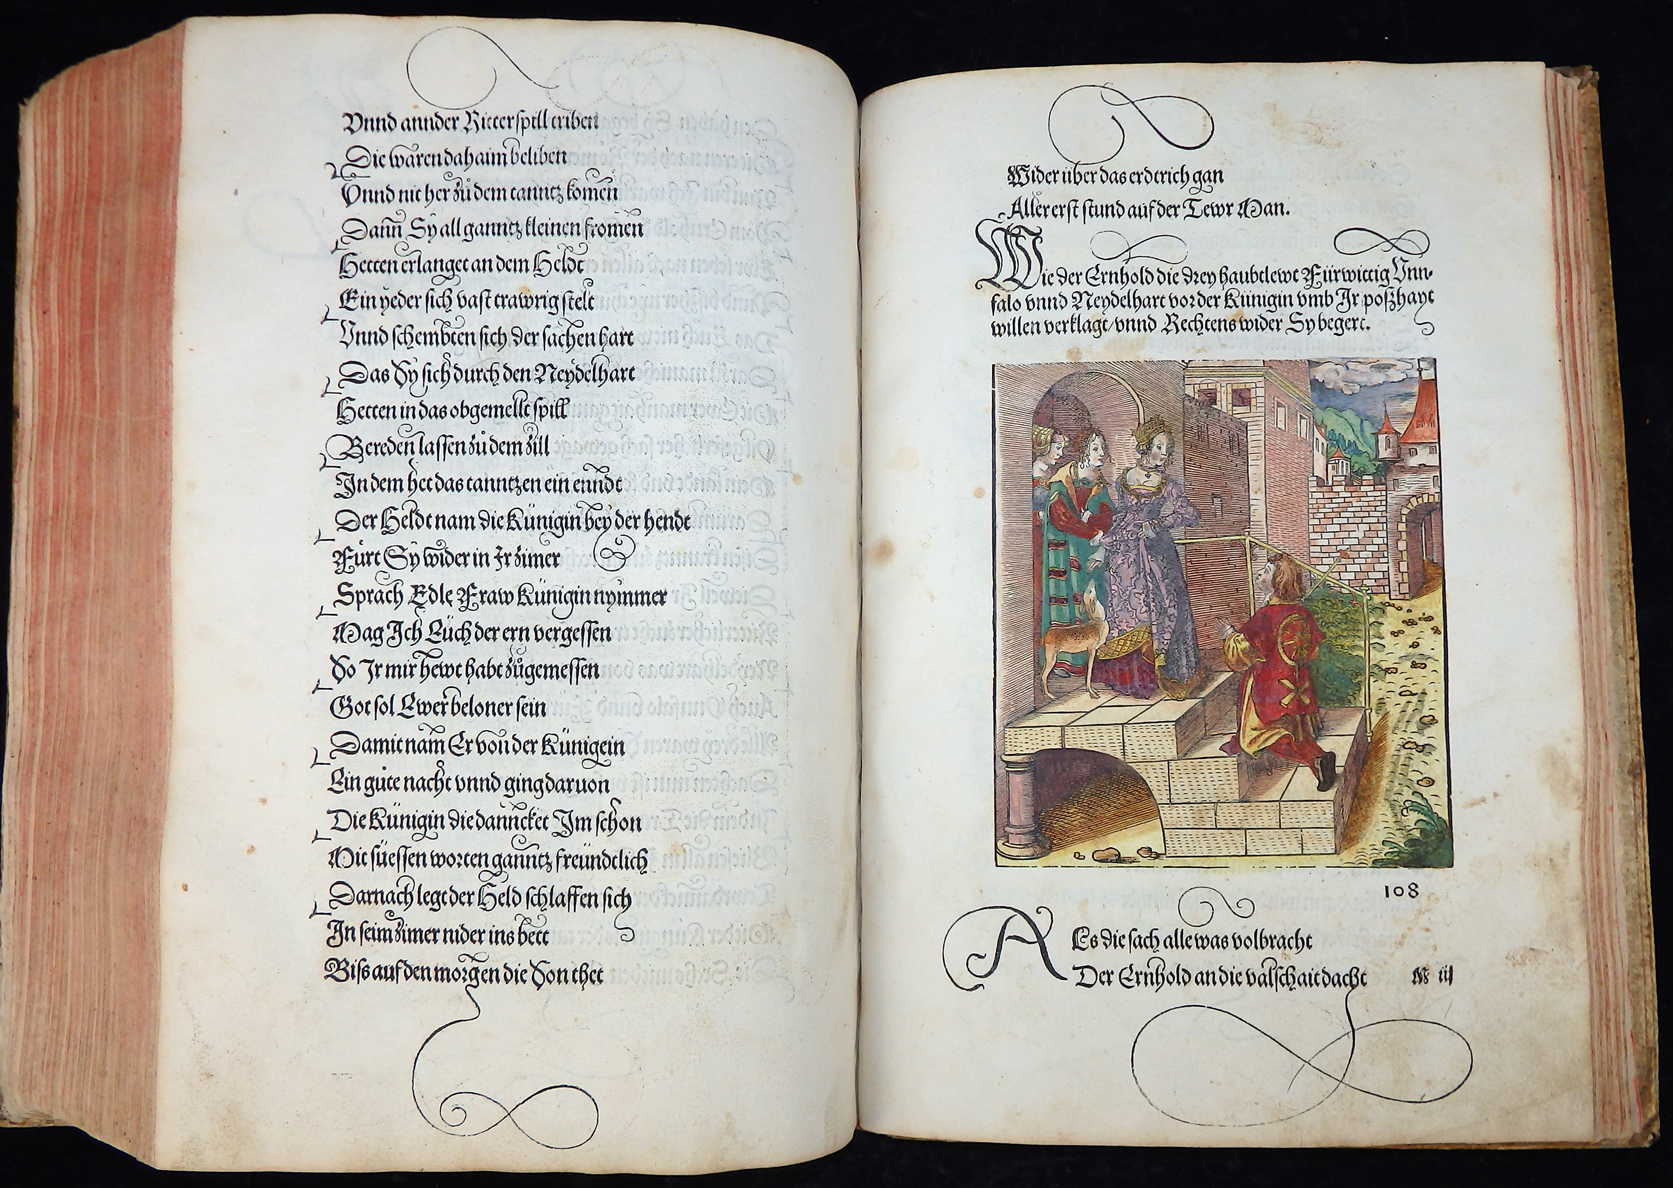 Vnnd annder Ritterspill triben
Die wåren dahaim beliben
Vnnd nit her zů dem tanntz komen
Dann̄ Sy all ganntz kleinen fromen
Hetten erlanget an dem Heldt
Ein yeder sich vast trawrig stelt
Vnnd schembten sich der sachen hart
Das Sy sich durch den Neydelhart
Hetten in das obgemellt spill
Bereden lassen zů dem zill
In dem het das tanntzen ein enndt
Der Heldt nam die Künigin bey der hendt
Fürt Sy wider in Ir zimer
Sprach Edle Fraw Künigin nymmer
Mag Ich Eüch der ern vergessen
So Ir mir hewt habt zůgemessen
Got sol Ewer beloner sein
Damit nam Er von der Künigein
Ein gůte nacht vnnd ging daruon
Die Künigin die danncket Im schon
Mit süessen worten ganntz freündtlich
Darnach legt der Held schlaffen sich
In seim zimer nider ins bett
Biss auf den morgen die Son thet
Wider über das erdtrich gan
Allererst stund auf der Tewr Man.
Wie der Ernhold die drey haubtlewt Fürwittig Vnn-
falo vnnd Neydelhart vor der Künigin vmb Ir poßhayt
willen verklagt/vnnd Rechtens wider Sy begert.
108
Als die sach alle was volbracht
Der Ernhold an die valschait dacht
M iij